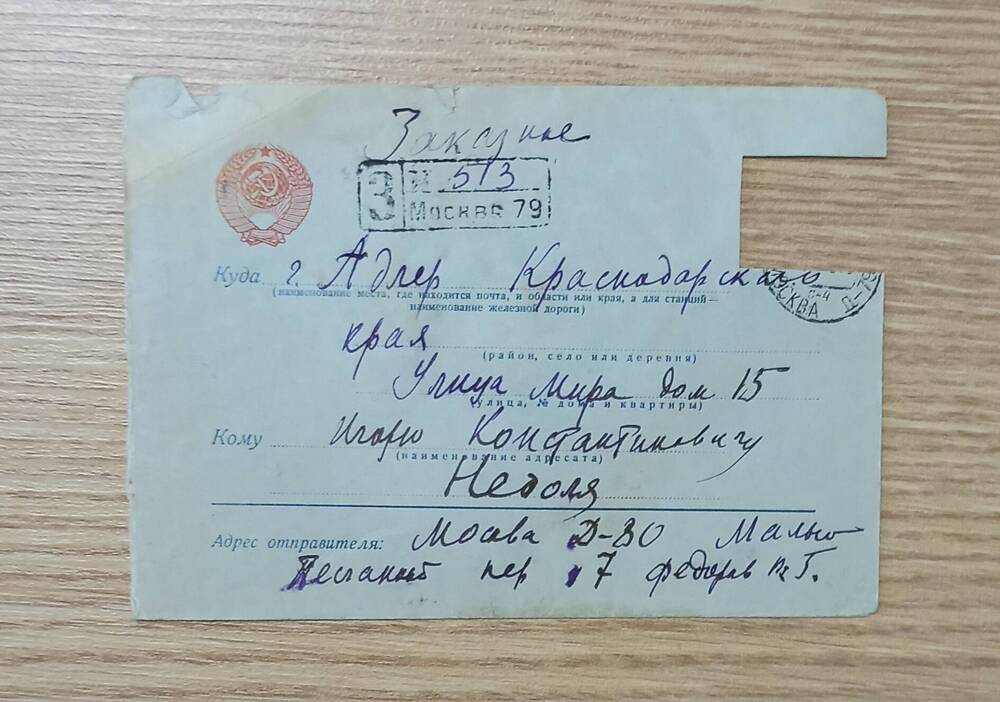 Заказное
З № 513
Москва 79
Куда г. Адлер Краснодарского
(наименование места, где находится почта, и области или края, а для станций—
наименование железной дороги)
края
(район, село или деревня)
Улица Мира дом 15
(улица, № дома и квартиры)
Кому Игорю Константиновичу
(наименование адресата)
Недоля
Адрес отправителя: Москва Д-80 Малый
Песчаный пер 7 Федоров